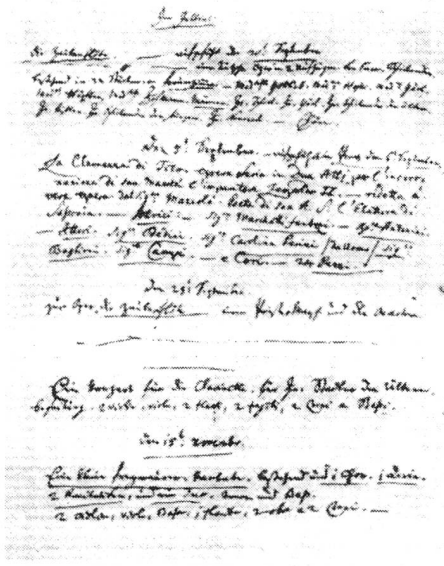 Im Jullius
Die Zauberflöte — aufgeführt den September.
eine teutsche Oper in 2 Aufzügen von Eman. Schickaneder.
bestehend in 22 Stücken. — Frauenzimmer. — Hofer.
Hr: Schikaneder der ältere.
Hr: Schikaneder der Jüngere. Hr: Nouseul. — Chöre.
Den 5t September. — aufgeführt in Prag den 6t September.
La Clemenza di Tito. opera seria in Due Atti. per l'incoro-
nazione di sua Maestà l'imperatore Leopoldo II. — ridotta à
vera opera dal Sigre Mazzolà. Poeta di sua A: S: l'Elettore di
Sassonia. — Attrici: — Sigra Marchetti fantozi. — Sigra Antonini.
— Attori. Sigre Bedini. Sigra Carolina Perini / da uomo / Sigre
Baglioni. Sigre Campi. — e Cori. —
Den 28t September.
zur Oper, die Zauberflöte — einen Priestermarsch und die
Ein Konzert für die Clarinette. für Hr: Stadler den Ältern.
begleitung. 2 viole, 2 flauti, 2 fagotti, 2 Corni e Baßi.
den 15t Novembr.
Eine kleine Freymaurer-kantate. bestehend aus 1 Chor. 1 Arie.
2 Recitativen, und ein Duo. tenor und Baß.
2 violini, viola, Basso, 1 flauto, 2 oboe e 2 Corni. —